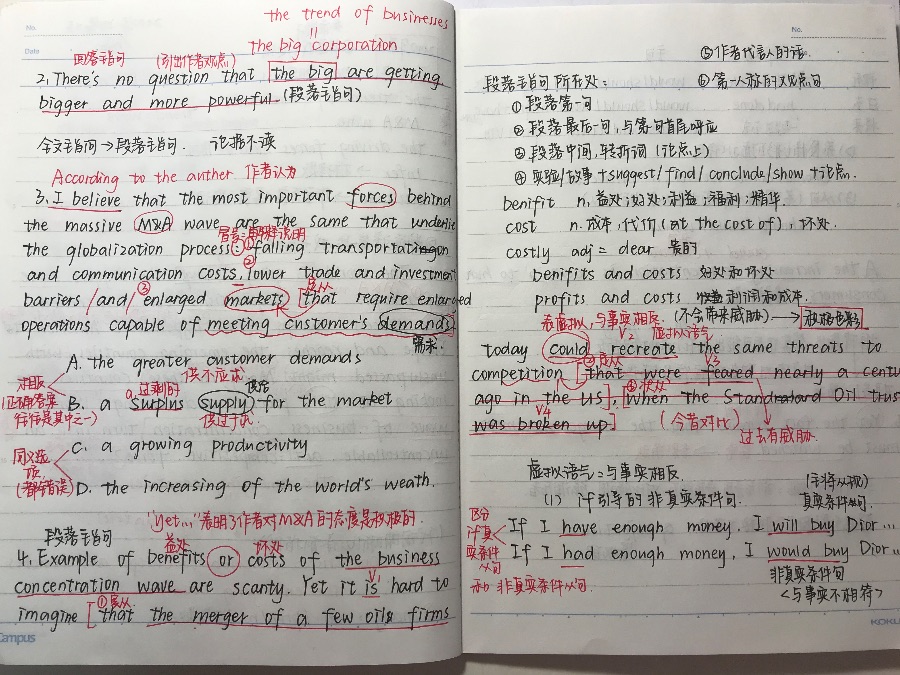 No.
Date
the trend of businesses
the big corporation
回答主旨句 (引出作者观点)
2. There's no question that the big are getting
bigger and more powerful. (段落主旨句)
全文主旨词→段落主旨句. 论据不读
According to the auther 作者认为
3. I believe that the most important forces behind
the massive M&A wave are the same that underlie
冒号:解释说明
the globalization process: ① falling transportation
and communication costs, ② lower trade and investment
barriers /and/ ③ enlarged markets that require enlarged
定从
operations capable of meeting customer's demands.
需求.
A. the greater customer demands
供不应求
相反
(正确答案往往是其中之一)
a.过剩的
供应
B. a surplus supply for the market
供过于求
C. a growing productivity
同义选项
(都错误)
D. the increasing of the world's weath.
"yet..."表明了作者对M&A的态度是积极的.
段落主旨句
益处 坏处
4. Example of benefits or costs of the business
concentration wave are scanty. Yet it is hard to
V1
imagine [that the merger of a few oil firms
①宾从
Campus
No.
⑤作者代言人的话
段落主旨句所在处: ⑥第一人称的观点句
①段落第一句
②段落最后一句,与第一句首尾呼应
③段落中间,转折词(论点上)
④实验/故事+suggest/find/conclude/show+论点.
benifit n.益处;好处;利益;福利;精华
cost n.成本,代价(at the cost of),坏处
costly adj = dear 贵的
benifits and costs 好处和坏处
profits and costs 利润和成本.
表虚拟,与事实相反. (不会带来威胁)→
V2 虚拟语气
today could recreate the same threats to
②定从 V3
competition [that were feared nearly a centu
ago in the US], [when the Standard Oil trus
V4
was broken up. (今昔对比)
过去有威胁.
虚拟语气:与事实相反.
(1) if引导的非真实条件句. (主将从现)
真实条件句
区分if真实条件从句
If I have enough money. I will buy Dior...
If I had enough money, I would buy Dior...
和 非真实条件从句. 非真实条件句
<与事实不相符>
KOKU